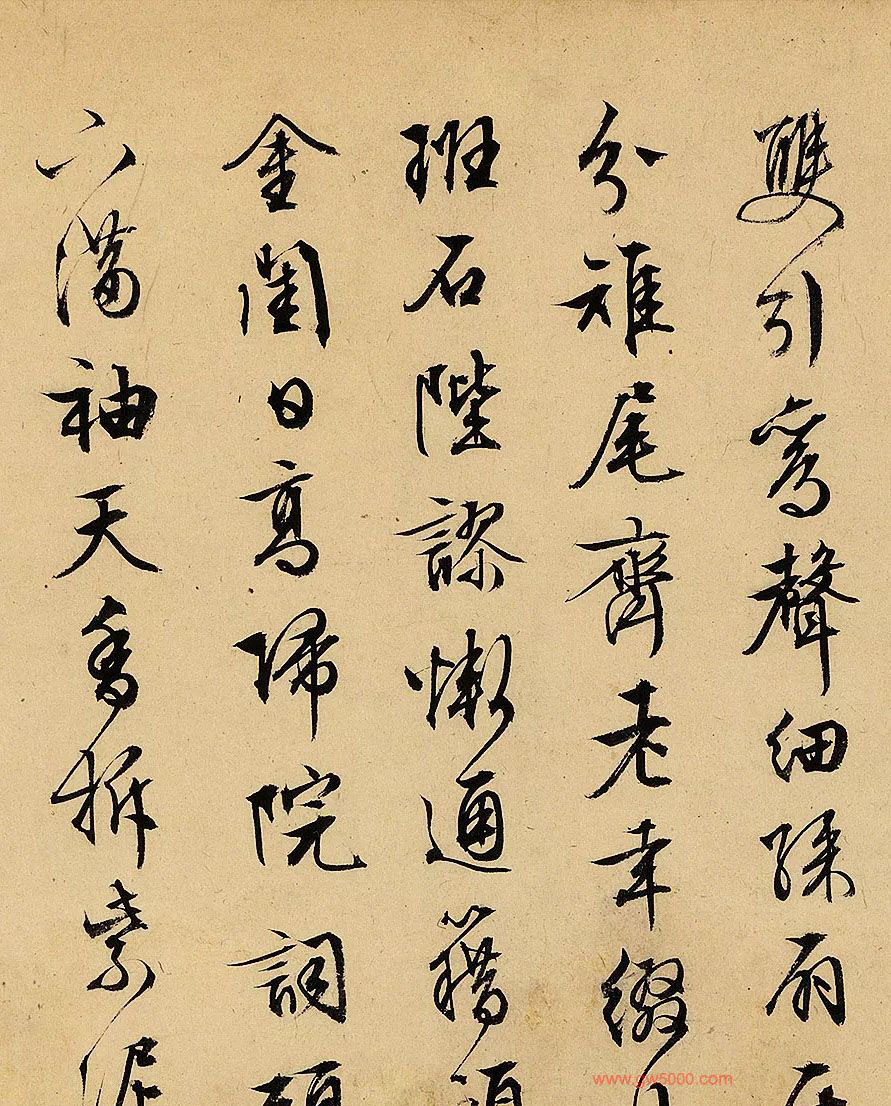 雙引鸞聲細綵扇
分雉尾齊老幸綴
班石陛謬慚通籍預
金閨日高歸院詞頭
下滿袖天香拆紫泥
www.gw5000.com